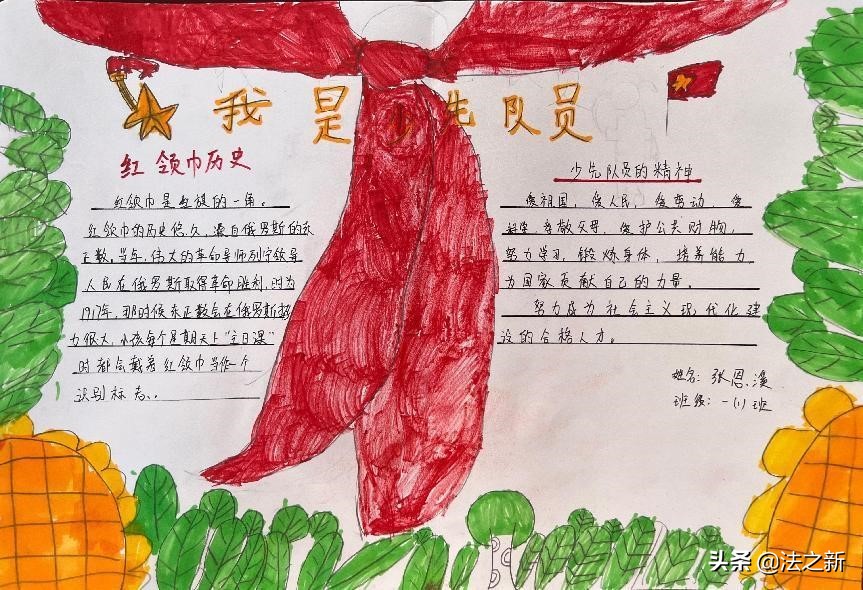 我是少先队员
红领巾历史
红领巾是红旗的一角。
红领巾的历史悠久,源自俄罗斯的东
正教,当年,伟大的革命导师列宁领导
人民在俄罗斯取得革命胜利,时为
1917年,那时候东正教会在俄罗斯势
力很大,小孩每个星期天上“主日课”
时都会戴着红领巾当作一个
识别标志..
少先队员的精神
爱祖国,爱人民,爱劳动,爱
科学,孝敬父母,爱护公共财物,
努力学习,锻炼身体,培养能力
为国家贡献自己的力量。
努力成为社会主义现代化建
设的合格人才。
姓名:张恩溪
班级:一(1)班
头条 @法之新